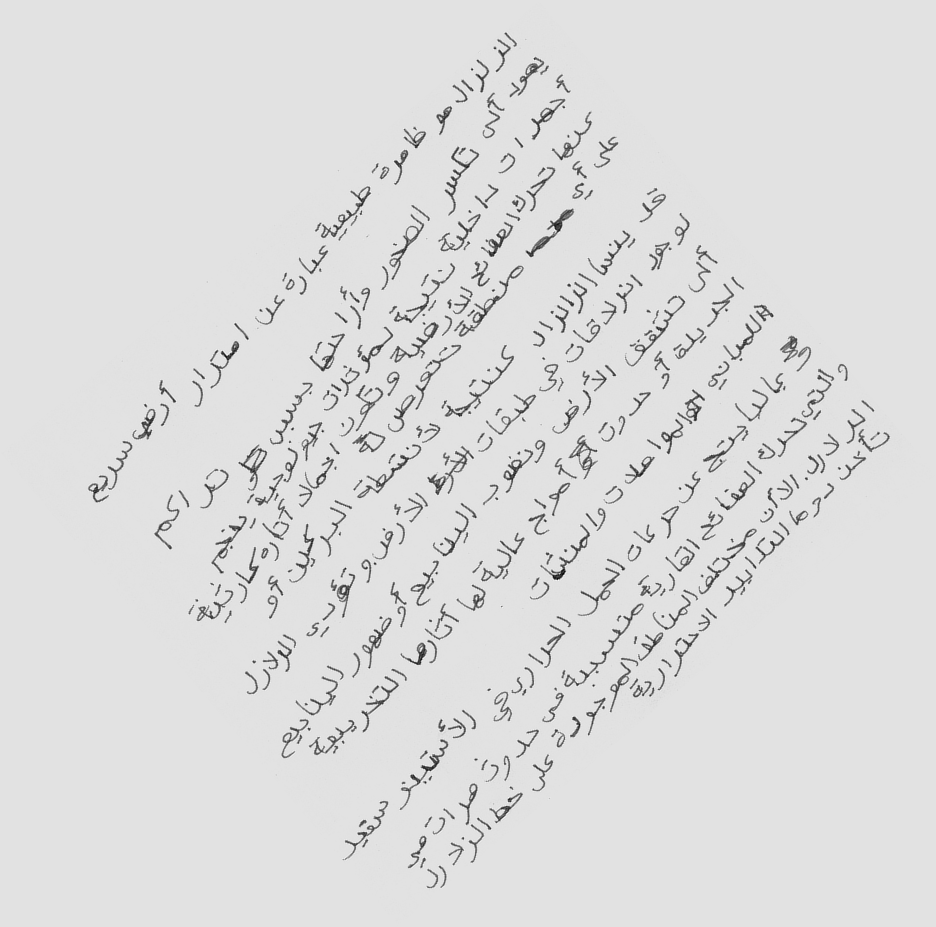 الزلزال هو ظاهرة طبيعية عبارة عن اهتزاز أرضي سريع
يعود ألى تكسر الصخور وأزاحتها بسبب تراكم
أجهادات داخلية نتيجة لمؤثرات جيولوجية ينجم
عنها تحرك الصفائح الأرضية وتكون اجمالا آثاره كارثية
على أي منطقة تتعرض له
قد ينشأ الزلزال كنتيجة لأنشطة البراكين أو
لوجود انزلاقات في طبقات الأرض وتؤدي الزلازل
ألى تشقق الأرض ونضوب الينابيع أو ظهور الينابيع
الجديدة أو حدوث أمواج عالية لها آثارها التخريبية
للمباني والمواصلات والمنشآت
وغالبا ينتج عن حركات الحمل الحراري في الأستينوسفير
والتي تحرك الصفائح القارية متسببة في حدوث هزات هي
الزلازل. الأن مختلف المناطق الموجودة على خط الزلازل
تأخذ نحوها التدابير الاحترازية